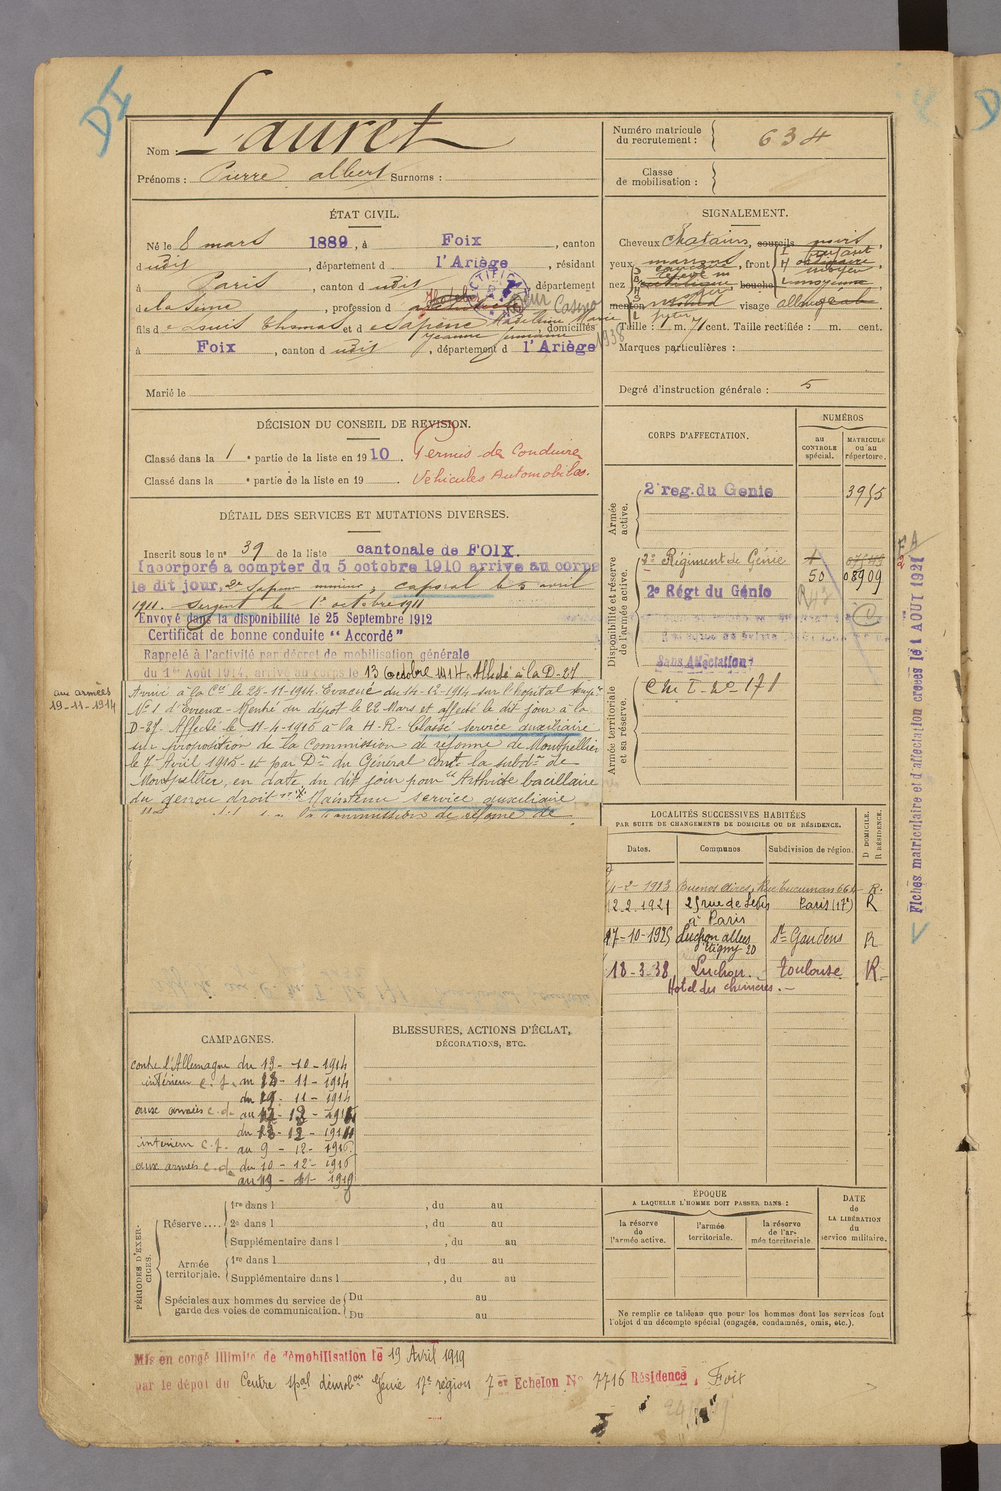 DI
Nom : Lauret
Prénoms : Pierre albert Surnoms :
Numéro matricule du recrutement : 634
Classe de mobilisation :
ÉTAT CIVIL.
Né le 8 mars 1889, à Foix, canton
dudit, département d l'Ariège, résidant
à Paris, canton dudit département
de la Seine, profession d
fils de Louis Thomas et de Sapene Madeleine Marie
domiciliés
à Foix, canton dudit, département d l'Ariège
1938
Marié le
SIGNALEMENT.
Cheveux Chatains, sourcils noirs,
yeux marrons, front
nez bouche
menton visage allongé
Taille : 1 m. 71 cent. Taille rectifiée : m. cent.
Marques particulières :
Degré d'instruction générale : 5
DÉCISION DU CONSEIL DE REVISION.
Classé dans la 1e partie de la liste en 1910. Permis de Conduire
Classé dans la e partie de la liste en 19 . Véhicules Automobiles.
DÉTAIL DES SERVICES ET MUTATIONS DIVERSES.
Inscrit sous le no 39 de la liste cantonale de FOIX.
Incorporé a compter du 5 octobre 1910 arrive au corps
le dit jour, 2e Sapeur mineur, caporal le 5 avril
1911. Sergent le 1er octobre 1911
Envoyé dans la disponibilité le 25 Septembre 1912
Certificat de bonne conduite "Accordé"
Rappelé à l'activité par décret de mobilisation générale
du 1er Août 1914, arrivé au corps le 13 Octobre 1914. Affecté à la D-27
aux armées
19-11-1914
Arrivé à la Cie le 28-11-1914. Evacué du 14-12-1914 sur l'hopital
No 1 d'Evreux. Rentré au dépot le 22 Mars et affecté le dit jour à la
D-27. Affecté le 11-4-1915 à la H-R- Classé service auxiliaire
sur proposition de la Commission de réforme de Montpellier
le 7 Avril 1915 et par Don du Général Comt la subdon de
Montpellier, en date du dit jour pour "Arthrite bacillaire
du genou droit" Maintenu service auxiliaire
la Commission de réforme de
CORPS D'AFFECTATION.
NUMÉROS
au CONTROLE spécial.
MATRICULE ou au répertoire.
Armée active.
2e reg. du Genie 3955
Disponibilité et réserve de l'armée active.
2e Régiment de Génie
50 08909
2e Régt du Génie
Sans Affectation
Armée territoriale et sa réserve.
FA
2
Fiches matriculaire et d'affectation créées le 1 AOUT 1921
LOCALITÉS SUCCESSIVES HABITÉES
PAR SUITE DE CHANGEMENTS DE DOMICILE OU DE RÉSIDENCE.
Dates. Communes. Subdivision de région. D. DOMICILE. R RÉSIDENCE.
4-2-1913 Buenos Aires, Rue Tucuman 664 R.
12.2.1921 Paris (17e) R
à Paris
17-10-1925 Luchon allées Etigny 20 St Gaudens R
18-3-38 Luchon. Toulouse R-
Hotel des chimères.
CAMPAGNES.
contre l'Allemagne du 13-10-1914
intérieur c. s. au 18-11-1914
du 19-11-1914
aux armées c. d. au 12-12-1914
du 13-12-1914
intérieur c. s. au 9-12-1916
aux armées c. d. du 10-12-1916
au 1919
BLESSURES, ACTIONS D'ÉCLAT,
DÉCORATIONS, ETC.
PÉRIODES D'EXERCICES.
Réserve....
1re dans l , du au
2e dans l , du au
Supplémentaire dans l , du au
Armée territoriale.
1re dans l , du au
Supplémentaire dans l , du au
Spéciales aux hommes du service de garde des voies de communication.
Du au
Du au
ÉPOQUE
A LAQUELLE L'HOMME DOIT PASSER DANS :
la réserve de l'armée active.
l'armée territoriale.
la réserve de l'armée territoriale.
DATE de LA LIBÉRATION du service militaire.
Ne remplir ce tableau que pour les hommes dont les services font
l'objet d'un décompte spécial (engagés, condamnés, omis, etc.).
Mis en congé illimité de démobilisation le 19 Avril 1919
par le dépôt du Centre Ipal démobon Génie 17e région 7er Echelon No 7716 Résidence, Foix